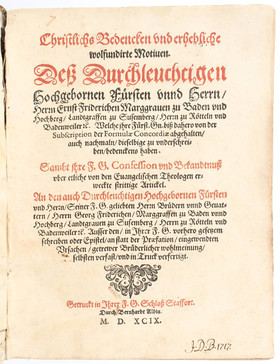 Christlichs Bedencken vnd erhebliche
wolfundirte Motiuen.
Deß Durchleuchtigen
Hochgebornen Fürsten vnnd Herrn/
Herrn Ernst Friderichen Marggrauen zu Baden vnd
Hochberg/ Landgraffen zu Susemberg/ Herrn zu Rötteln vnd
Badenweiler ꝛc. Welche ihre Fürst. Gn. biß dahero von der
Subscription der Formulæ Concordiæ abgehalten/
auch nachmaln/ dieselbige zu vnderschrei-
ben/ bedenckens haben.
Sampt ihre F. G. Confession vnd Bekandtnuß
vber etliche von den Euangelischen Theologen er-
weckte strittige Articul.
An den auch Durchleuchtigen Hochgebornen Fürsten
vnd Herrn/ Seiner F. G. geliebten Herrn Brüdern vnnd Geuat-
tern/ Herrn Georg Friderichen/ Marggraffen zu Baden vnnd
Hochberg/ Landgrauen zu Susemberg/ Herrn zu Rötteln vnd
Badenweiler ꝛc. Ausser den/ in Ihrer F. G. vorhero gesetzten
schreiben oder Epistel/ an statt der Præfation/ eingewendten
Vrsachen/ getrewer Brüderlicher wohlmeinung/
selbsten verfaßt/ vnd in Truck verfertigt.
Getruckt in Ihrer F. G. Schloß Staffort.
Durch Bernhardt Albin.
M. D. XCIX.
J.D.B. 1717.